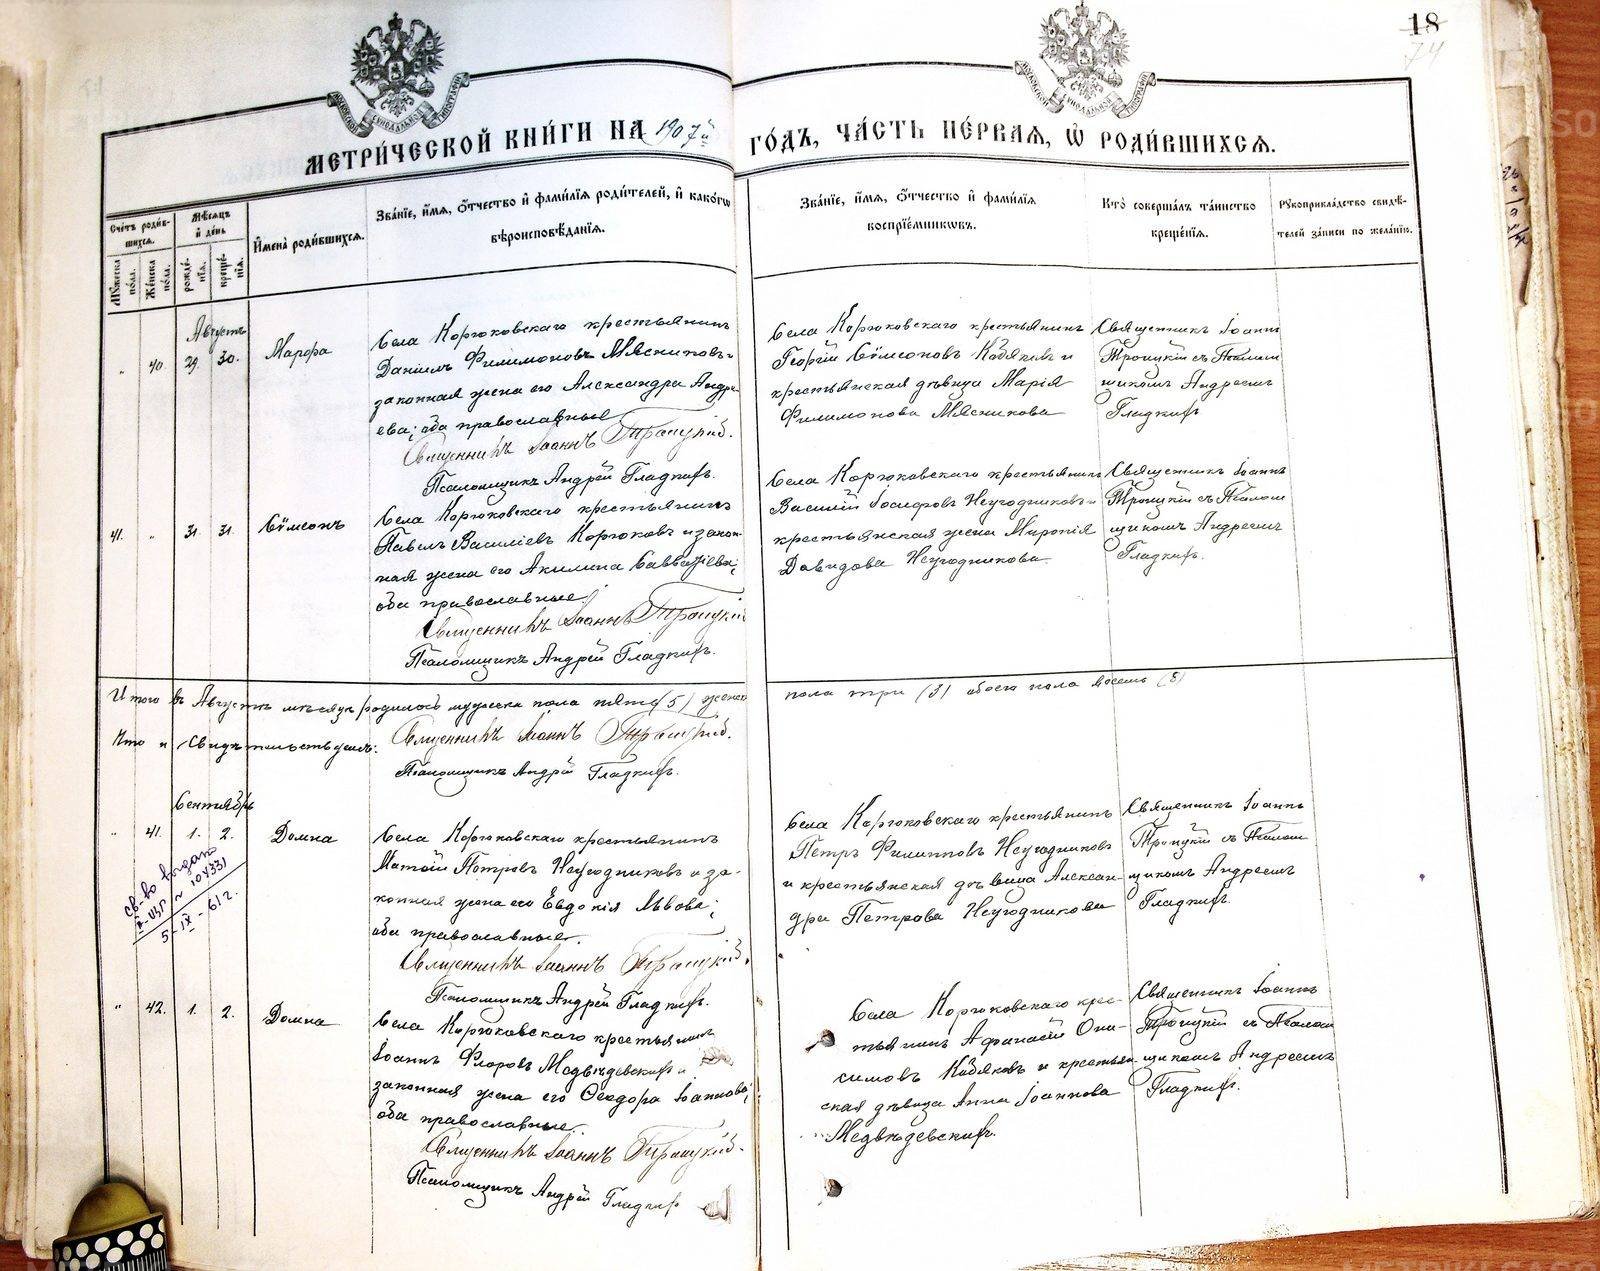 18
74
МЕТРИ́ЧЕСКОЙ КНИ́ГИ НА 1907й ГО́ДЪ, ЧА́СТЬ ПЕ́РВАЯ, Ѡ РОДИ́ВШИХСѦ.
Сче́тъ роди́в-
шихсѧ.
Мꙋ́жеска по́ла.
Же́нска по́ла.
Мѣ́сѧцъ
и҆ де́нь
рожде́-
нїѧ.
креще́-
нїѧ.
И҆мена̀ роди́вшихсѧ.
Зва́нїе, и҆́мѧ, ѻ҆́тчество и҆ фами́лїѧ роди́телей, и҆ како́гѡ
вѣроисповѣ́данїѧ.
Зва́нїе, и҆́мѧ, ѻ҆́тчество и҆ фами́лїѧ
воспрїе́мникѡвъ.
Кто̀ соверша́лъ та́инство
креще́нїѧ.
Рꙋкоприкла́дство свидѣ́-
телей за́писи по жела́нїю.
Августъ
" 40. 29. 30. Марѳа
Села Корюковскаго крестьянинъ
Даніилъ Филимоновъ Мясниковъ и
законная жена его Александра Андре-
ева; оба православные
Священникъ Іоаннъ Троицкій.
Псаломщикъ Андрей Гладкихъ.
Села Корюковскаго крестьянинъ
Георгій Сѵмеоновъ Кобяковъ и
крестьянская дѣвица Марія
Филимонова Мясникова
Священникъ Іоаннъ
Троицкій съ Псалом
щикомъ Андреемъ
Гладкихъ
41. " 31. 31. Сѵмеонъ
Села Корюковскаго крестьянинъ
Павелъ Василіевъ Корюковъ и закон-
ная жена его Акилина Савватіева;
оба православные
Священникъ Іоаннъ Троицкій
Псаломщикъ Андрей Гладкихъ.
Села Корюковскаго крестьянинъ
Василій Іосифовъ Неугодниковъ и
крестьянская жена Миронія
Давидова Неугодникова.
Священникъ Іоаннъ
Троицкій съ Псалом
щикомъ Андреемъ
Гладкихъ.
Итого въ Августѣ мѣсяцѣ родилось мужеска пола пять (5) женска
пола три (3) обоего пола восемь (8)
Что и свидѣтельствуемъ:
Священникъ Іоаннъ Троицкій.
Псаломщикъ Андрей Гладкихъ.
Сентябрь
" 41. 1. 2. Домна
Села Корюковскаго крестьянинъ
Матѳій Петровъ Неугодниковъ и за-
конная жена его Евдокія Львова;
оба православные.
Священникъ Іоаннъ Троицкій.
Псаломщикъ Андрей Гладкихъ.
Села Корюковскаго крестьянинъ
Петръ Филипповъ Неугодниковъ
и крестьянская дѣвица Алексан-
дра Петрова Неугодникова
Священникъ Іоаннъ
Троицкій съ Псалом
щикомъ Андреемъ
Гладкихъ.
св-во выдано
5-IX-61г.
" 42. 1. 2. Домна
Села Корюковскаго крестьянинъ
Іоаннъ Флоровъ Медвѣдевскихъ и
законная жена его Ѳеодора Іоаннова;
оба православные.
Священникъ Іоаннъ Троицкій.
Псаломщикъ Андрей Гладкихъ
Села Корюковскаго крес-
тьянинъ Афанасій Они-
симовъ Кобяковъ и крестьян-
ская дѣвица Анна Іоаннова
Медвѣдевскихъ.
Священникъ Іоаннъ
Троицкій съ Псалом
щикомъ Андреемъ
Гладкихъ.